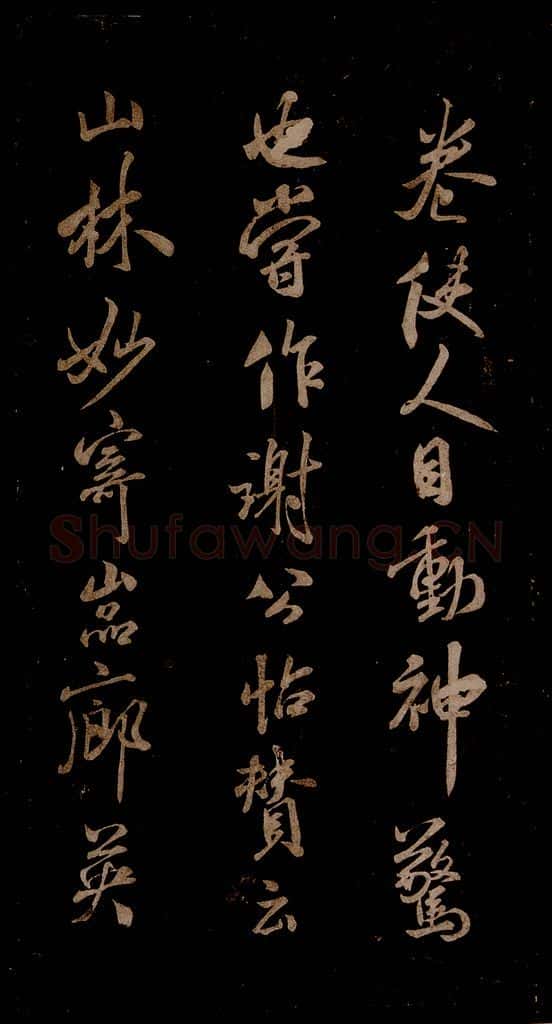 卷使人目動神驚
也嘗作謝公帖贊云
山林妙寄嵓廊英
Shufawang.CN